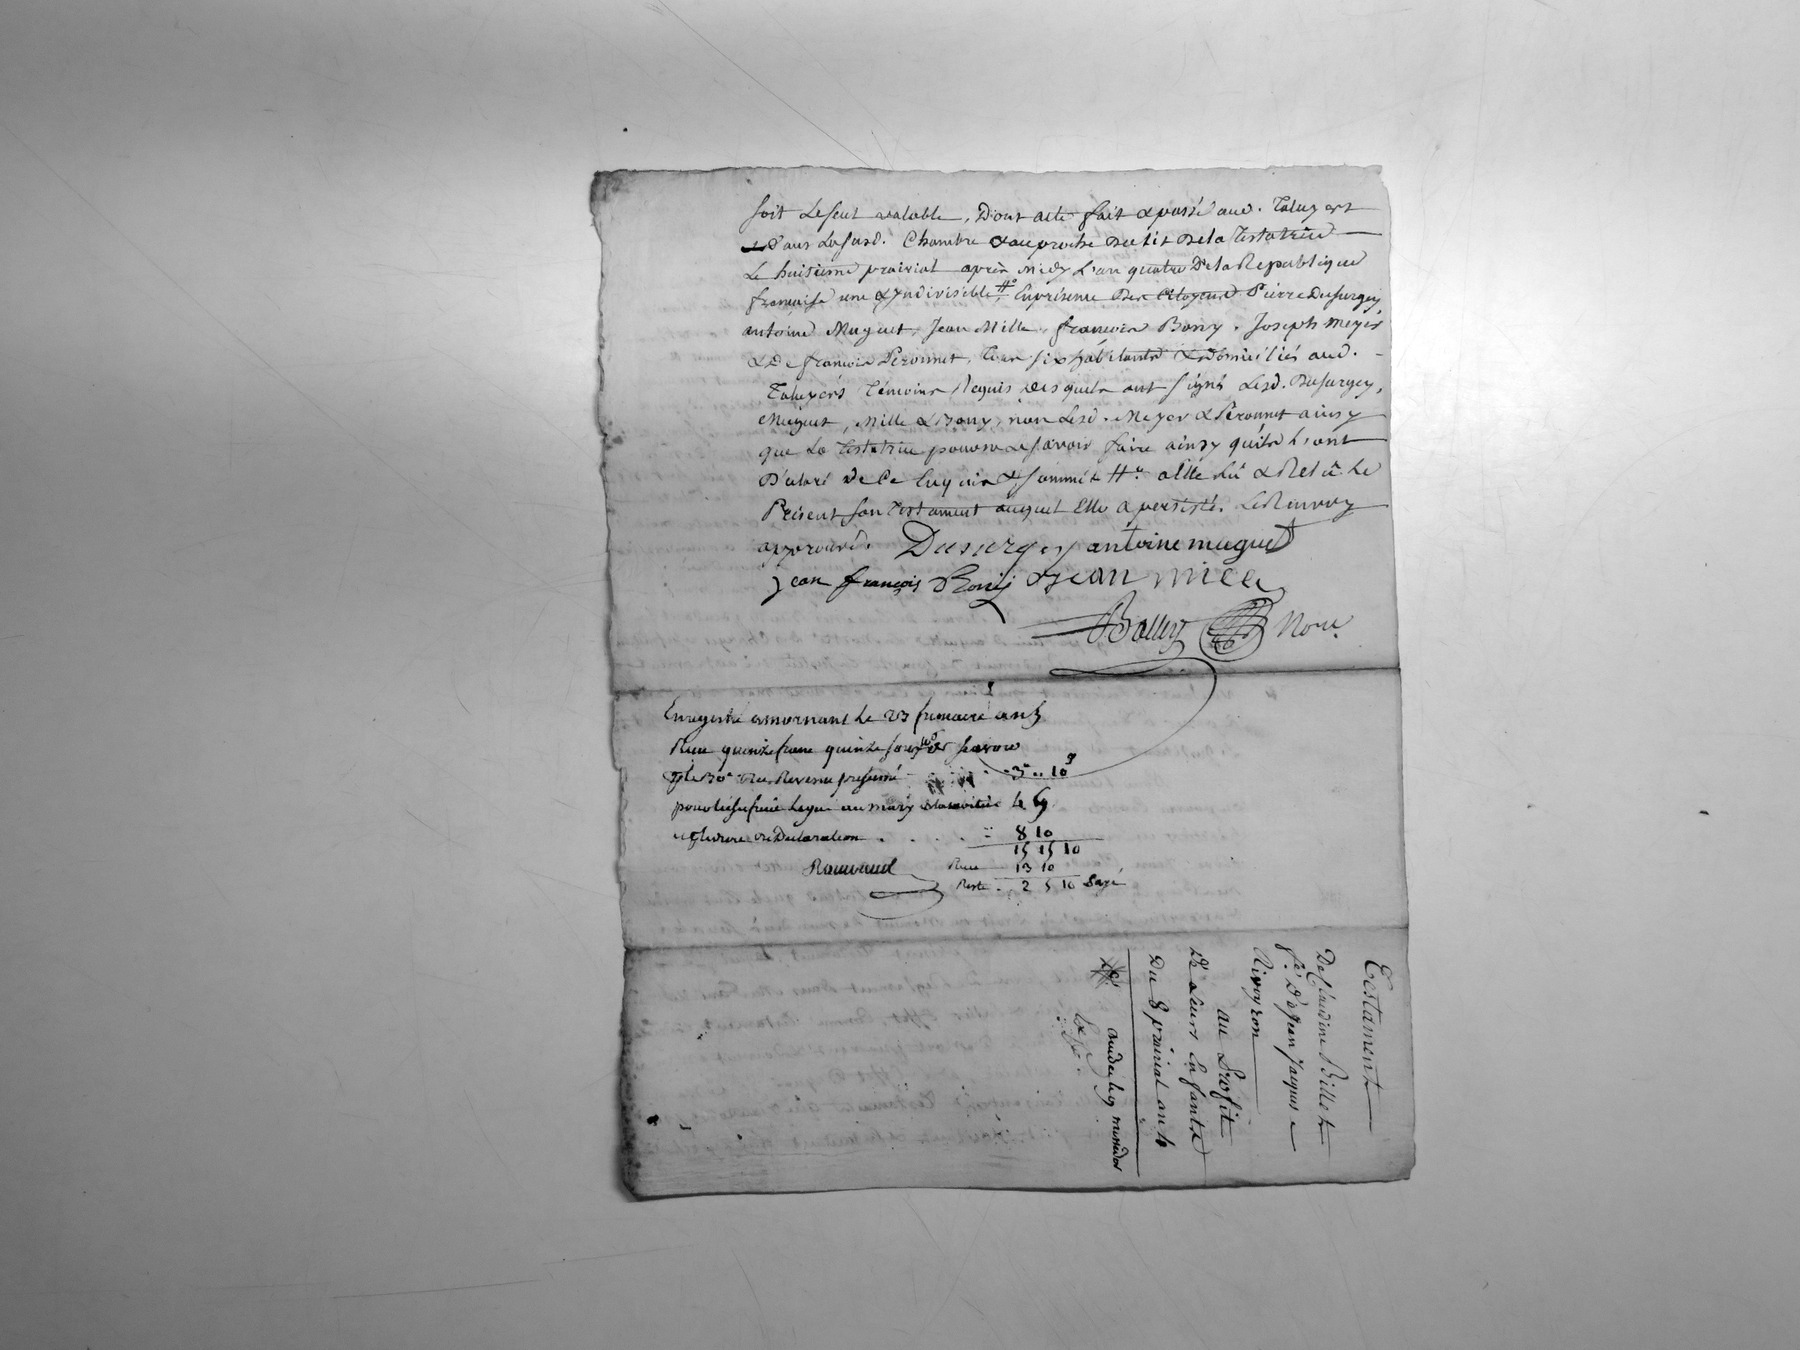 soit le seul valable, Dont acte fait & passé aud. Taluyers
Dans la susd. Chambre & au proche du lit de la testatrice
Le huitieme prairial après midy L'an quatre De la Republique
française une & Indivisible, En présence des Citoyens Pierre Dusurgey,
antoine Muguet, Jean Mille, françois Bony, Joseph Meyer
& De françois Peronnet, tous six habitants & domiciliés aud.
Taluyers Témoins Requis desquels ont signé Lesd. Dusurgey,
Muguet, Mille & Bony, non Lesd. Meyer & Peronnet ainsy
que La testatrice pour ne sçavoir faire ainsy qu'ils L'ont
Déclaré De Ce Enquis & sommés a Elle Lû & Relû Le
Present son testament auquel Elle a persisté. Le Renvoy
approuvé. Dusurgey antoine muguet
jean françois Bony Jean mille
Nore.
Enregistré a mornant le 23 frimaire an 5
Recu quinze franc quinze sous 10d savoir
du Revenu présumé 3 .. 10
pour au mary 4
Declaration . . . . 8 10
15 15 10
Recu 13 10
Reste . 2 5 10 payé
Testament
De Claudine Billet
fe. De Jean Jaques
Rivoyron
au Profit
De Leurs Enfants
Du 8 prairial an 4
messidor
Expe.